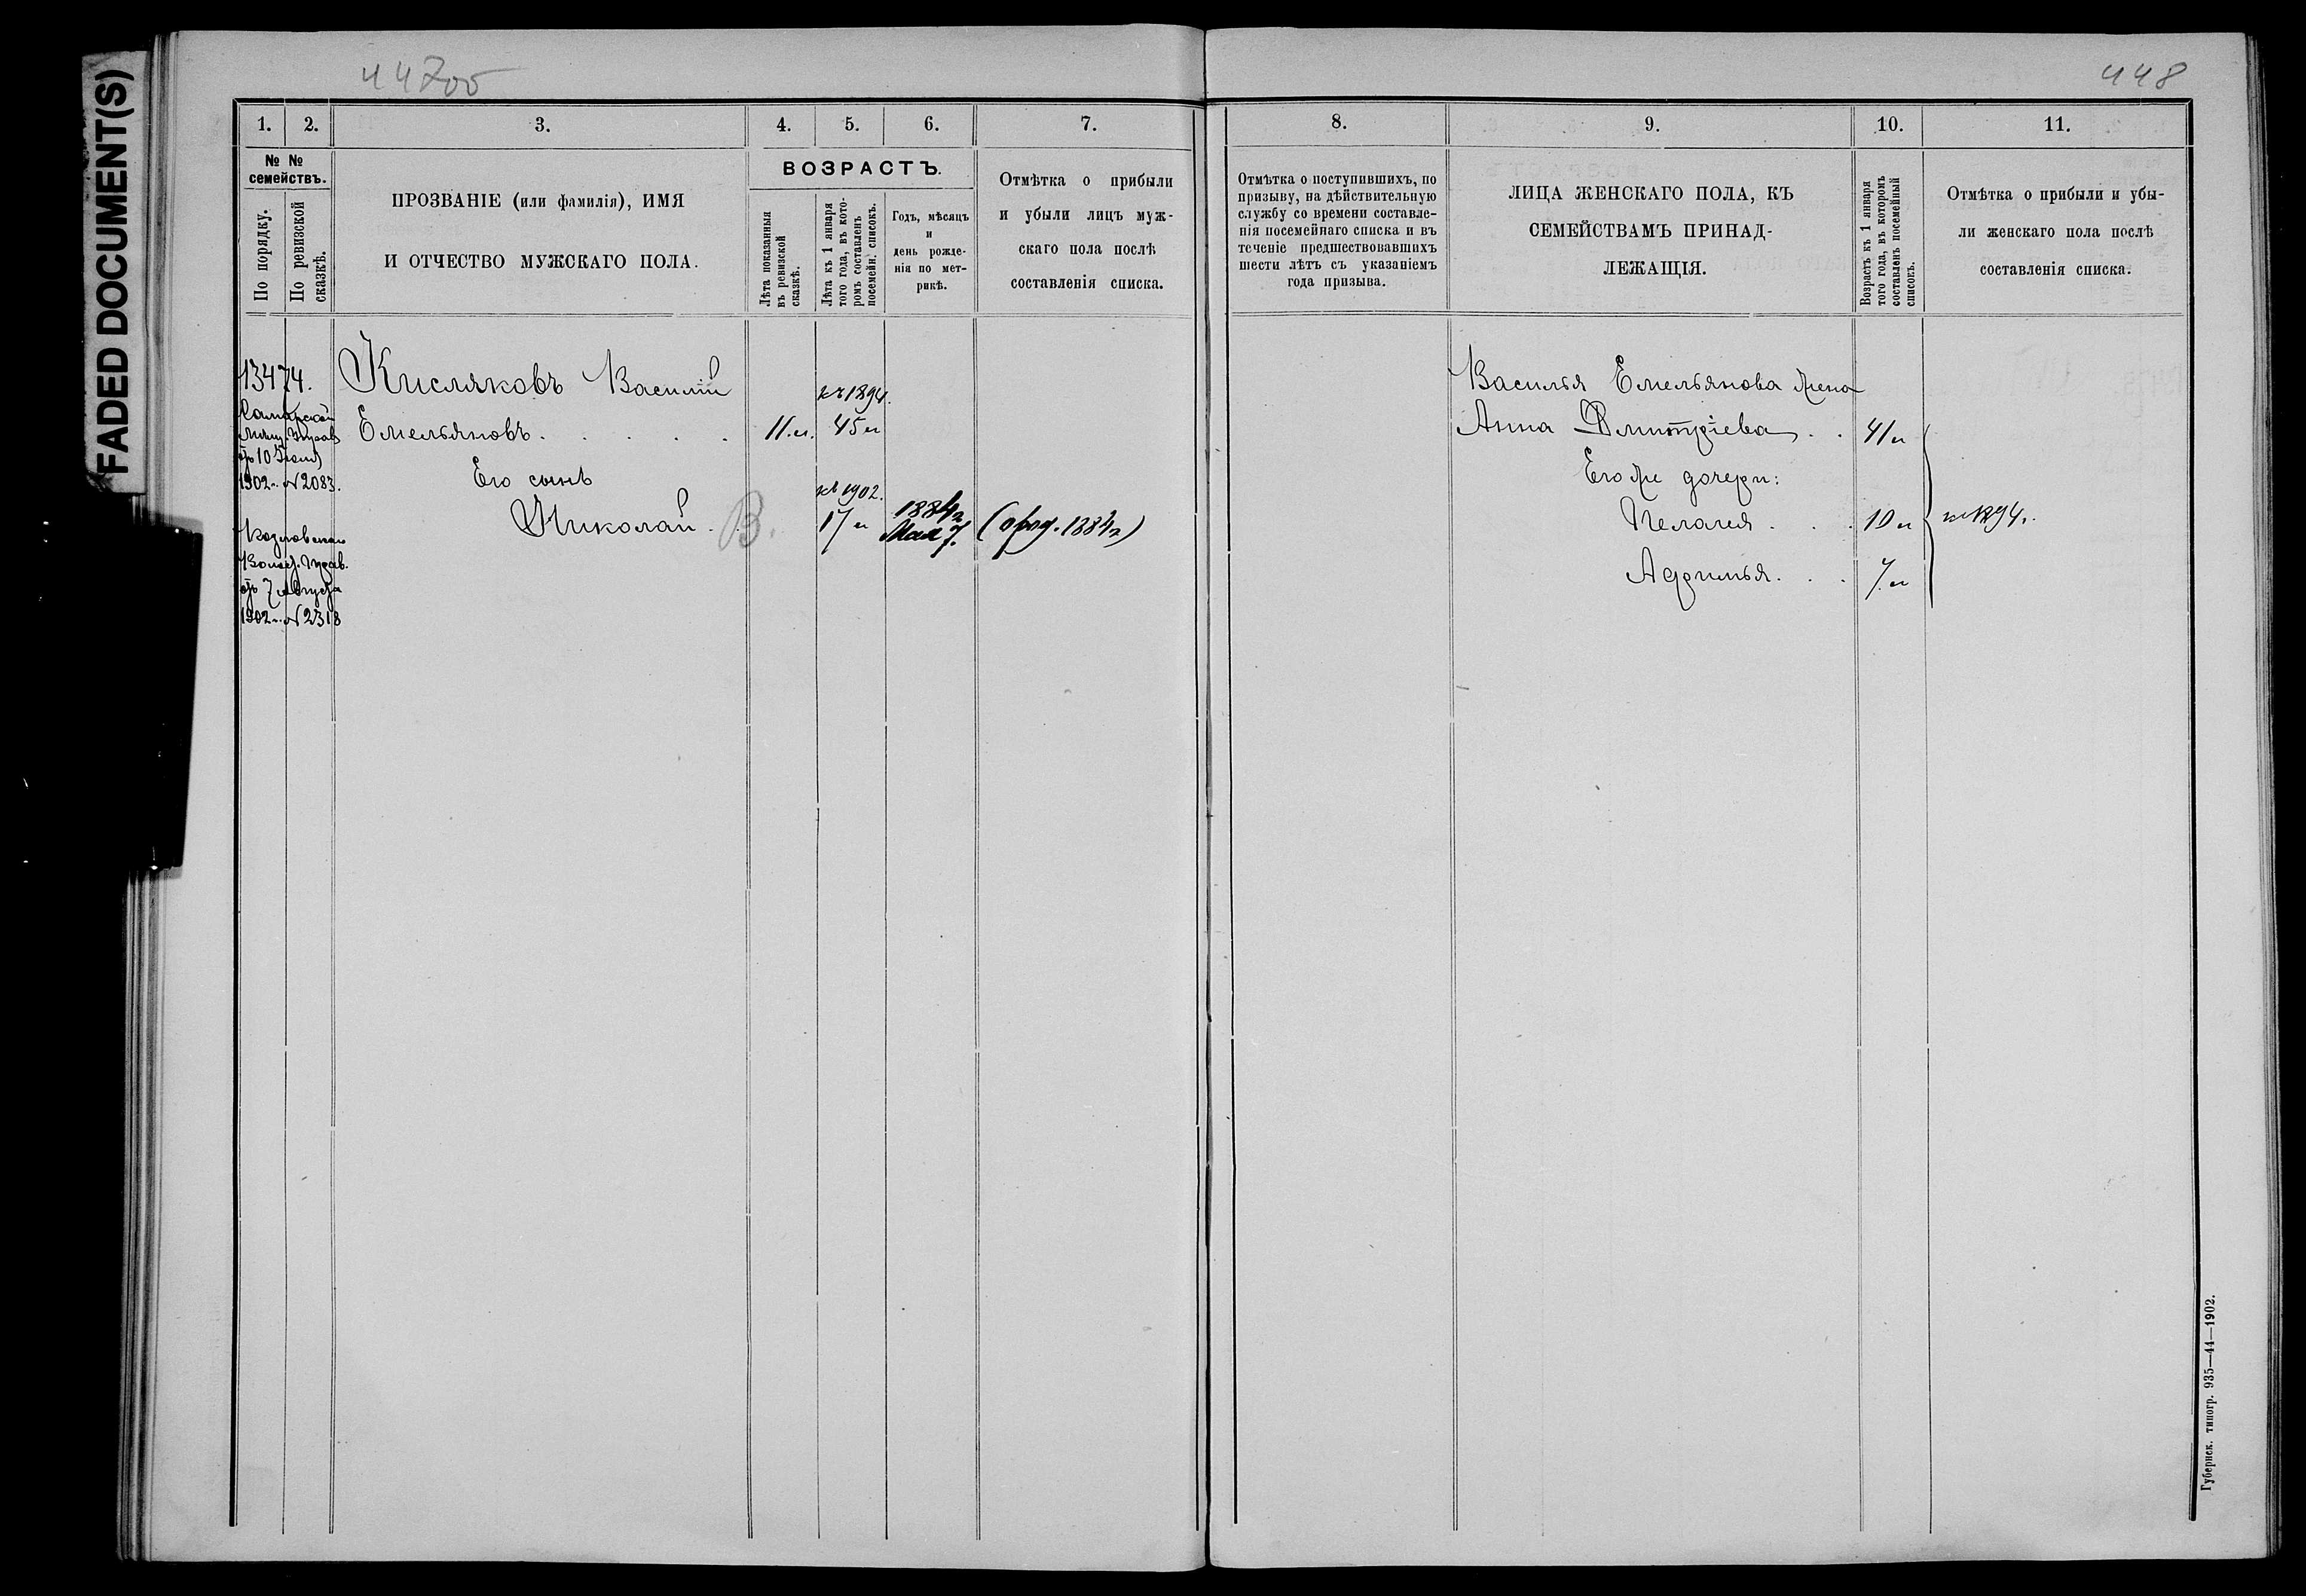 FADED DOCUMENT(S)
447об
448
1. 2. 3. 4. 5. 6. 7.
№ №
семействъ.
По порядку.
По ревизской
сказкѣ.
ПРОЗВАНІЕ (или фамилія), ИМЯ
И ОТЧЕСТВО МУЖСКАГО ПОЛА.
ВОЗРАСТЪ.
Лѣта показанныя
въ ревизской
сказкѣ.
Лѣта къ 1 января
того года, въ кото-
ромъ составленъ
посемейн. списокъ.
Годъ, мѣсяцъ
и
день рожде-
нія по мет-
рикѣ.
Отмѣтка о прибыли
и убыли лицъ муж-
скаго пола послѣ
составленія списка.
13474.
Самарской
Мѣщ. Управ
отъ 10 Іюля
1902 г. № 2083.
Козловскаго
Волост. Прав.
отъ 7 Августа
1902 г. № 2318
Кисляковъ Василій
Емельяновъ . . . . . 11. л.
къ 1894.
45 л
Его сынъ
Николай . В.
къ 1902.
17 л
1884 г
Мая 7.
(о род. 1884 г)
8. 9. 10. 11.
Отмѣтка о поступившихъ, по
призыву, на дѣйствительную
службу со времени составле-
нія посемейнаго списка и въ
теченіе предшествовавшихъ
шести лѣтъ съ указаніемъ
года призыва.
ЛИЦА ЖЕНСКАГО ПОЛА, КЪ
СЕМЕЙСТВАМЪ ПРИНАД-
ЛЕЖАЩІЯ.
Возрастъ къ 1 января
того года, въ которомъ
составленъ посемейный
списокъ.
Отмѣтка о прибыли и убы-
ли женскаго пола послѣ
составленія списка.
Василья Емельянова жена
Анна Дмитріева . . 41 л
Его же дочери:
Пелагея . . . 10 л
къ 1894 г.
. . . 7 л
Губернск. типогр. 935—44—1902.